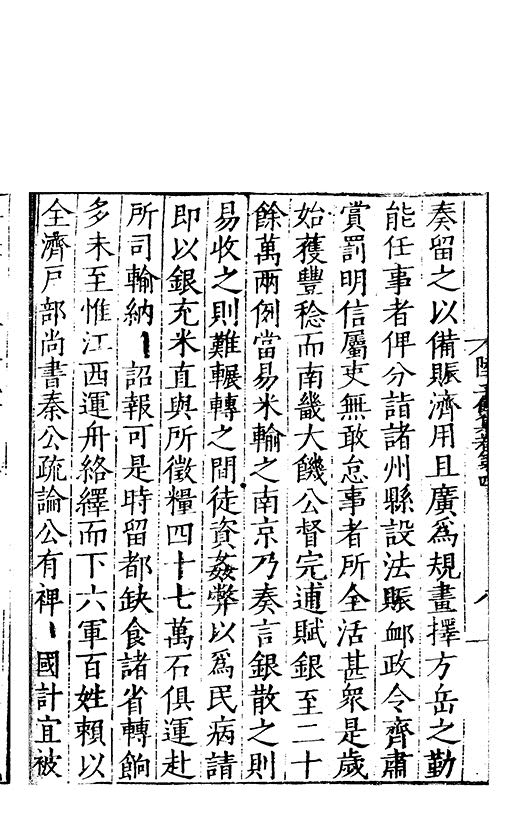 奏留之以備賑濟用且廣爲規畫擇方岳之勤
能任事者俾分詣諸州縣設法賑䘏政令齊肅
賞罰明信屬吏無敢怠事者所全活甚衆是歲
始獲豐稔而南畿大饑公督完逋賦銀至二十
餘萬兩例當易米輸之南京乃奏言銀散之則
易收之則難輾轉之間徒資姦弊以爲民病請
即以銀充米直與所徵糧四十七萬石俱運赴
所司輸納詔報可是時留都缺食諸省轉餉
多未至惟江西運舟絡繹而下六軍百姓賴以
全濟戸部尚書秦公疏論公有裨國計宜被